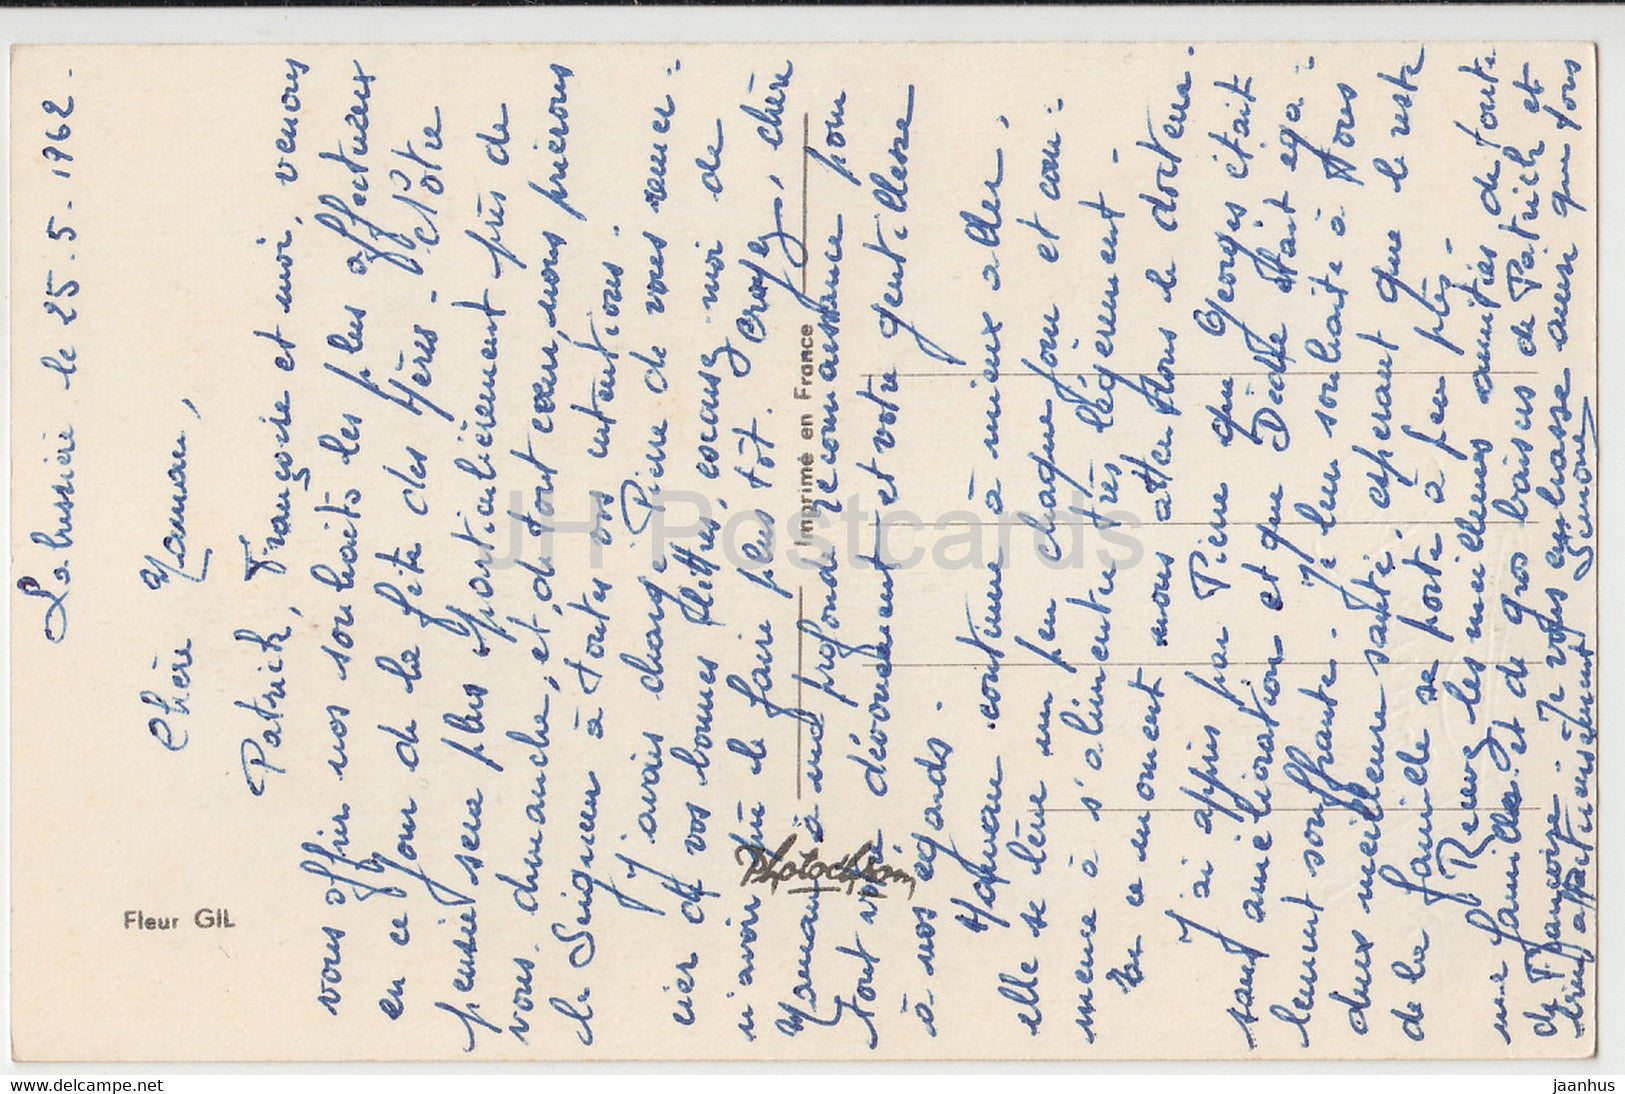 Labussière le 25-5-1962-
Chère Maman,
Patrick, Françoise et moi, venons
vous offrir nos souhaits les plus affectueux
en ce jour de la fête des Mères - Nôtre
pensée sera plus particulièrement près de
vous. dimanche, et, de tout cœur, nous prierons
le Seigneur à toutes vos intentions.
J'avais chargé Pierre de vous remer=
cier de vos bonnes lettres, excusez moi de
n'avoir pu le faire plus tôt. Croyez, chère
Maman, à ma profonde reconnaissance pour
tout votre dévouement et votre gentillesse
à nos égards.
Maman continue à mieux aller,
elle se lève un peu chaque jour et com=
mence à s'alimenter très légèrement -
En ce moment nous attendons le docteur.
J'ai appris par Pierre que Georges était
sans amélioration et que Dédée était éga=
lement souffrante - Je leur souhaite à tous
deux meilleure santé, espérant que le reste
de la famille se porte à peu près -
Recevez les meilleures amitiés de toute
ma famille et de gros baisers de Patrick et
de Françoise. Je vous embrasse aussi que tous
bien affectueusement
Simone
Fleur GIL
Photochrom
Imprimé en France
JH Postcards
www.delcampe.net
jaanhus